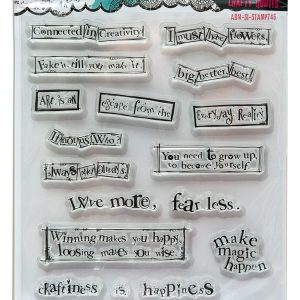 CRAFTY QUOTES
ABM-SI-STAMP746
Connected in Creativity!
I must have flowers
Fake it till you make it.
big better best!
Art is an
escape from the
Everyday Reality
Whoops Who?
Always, what always.
You need to grow up,
to become yourself.
Live more, fear less.
Winning makes you happy,
loosing makes you wise.
make
magic
happen
craftiness is happiness